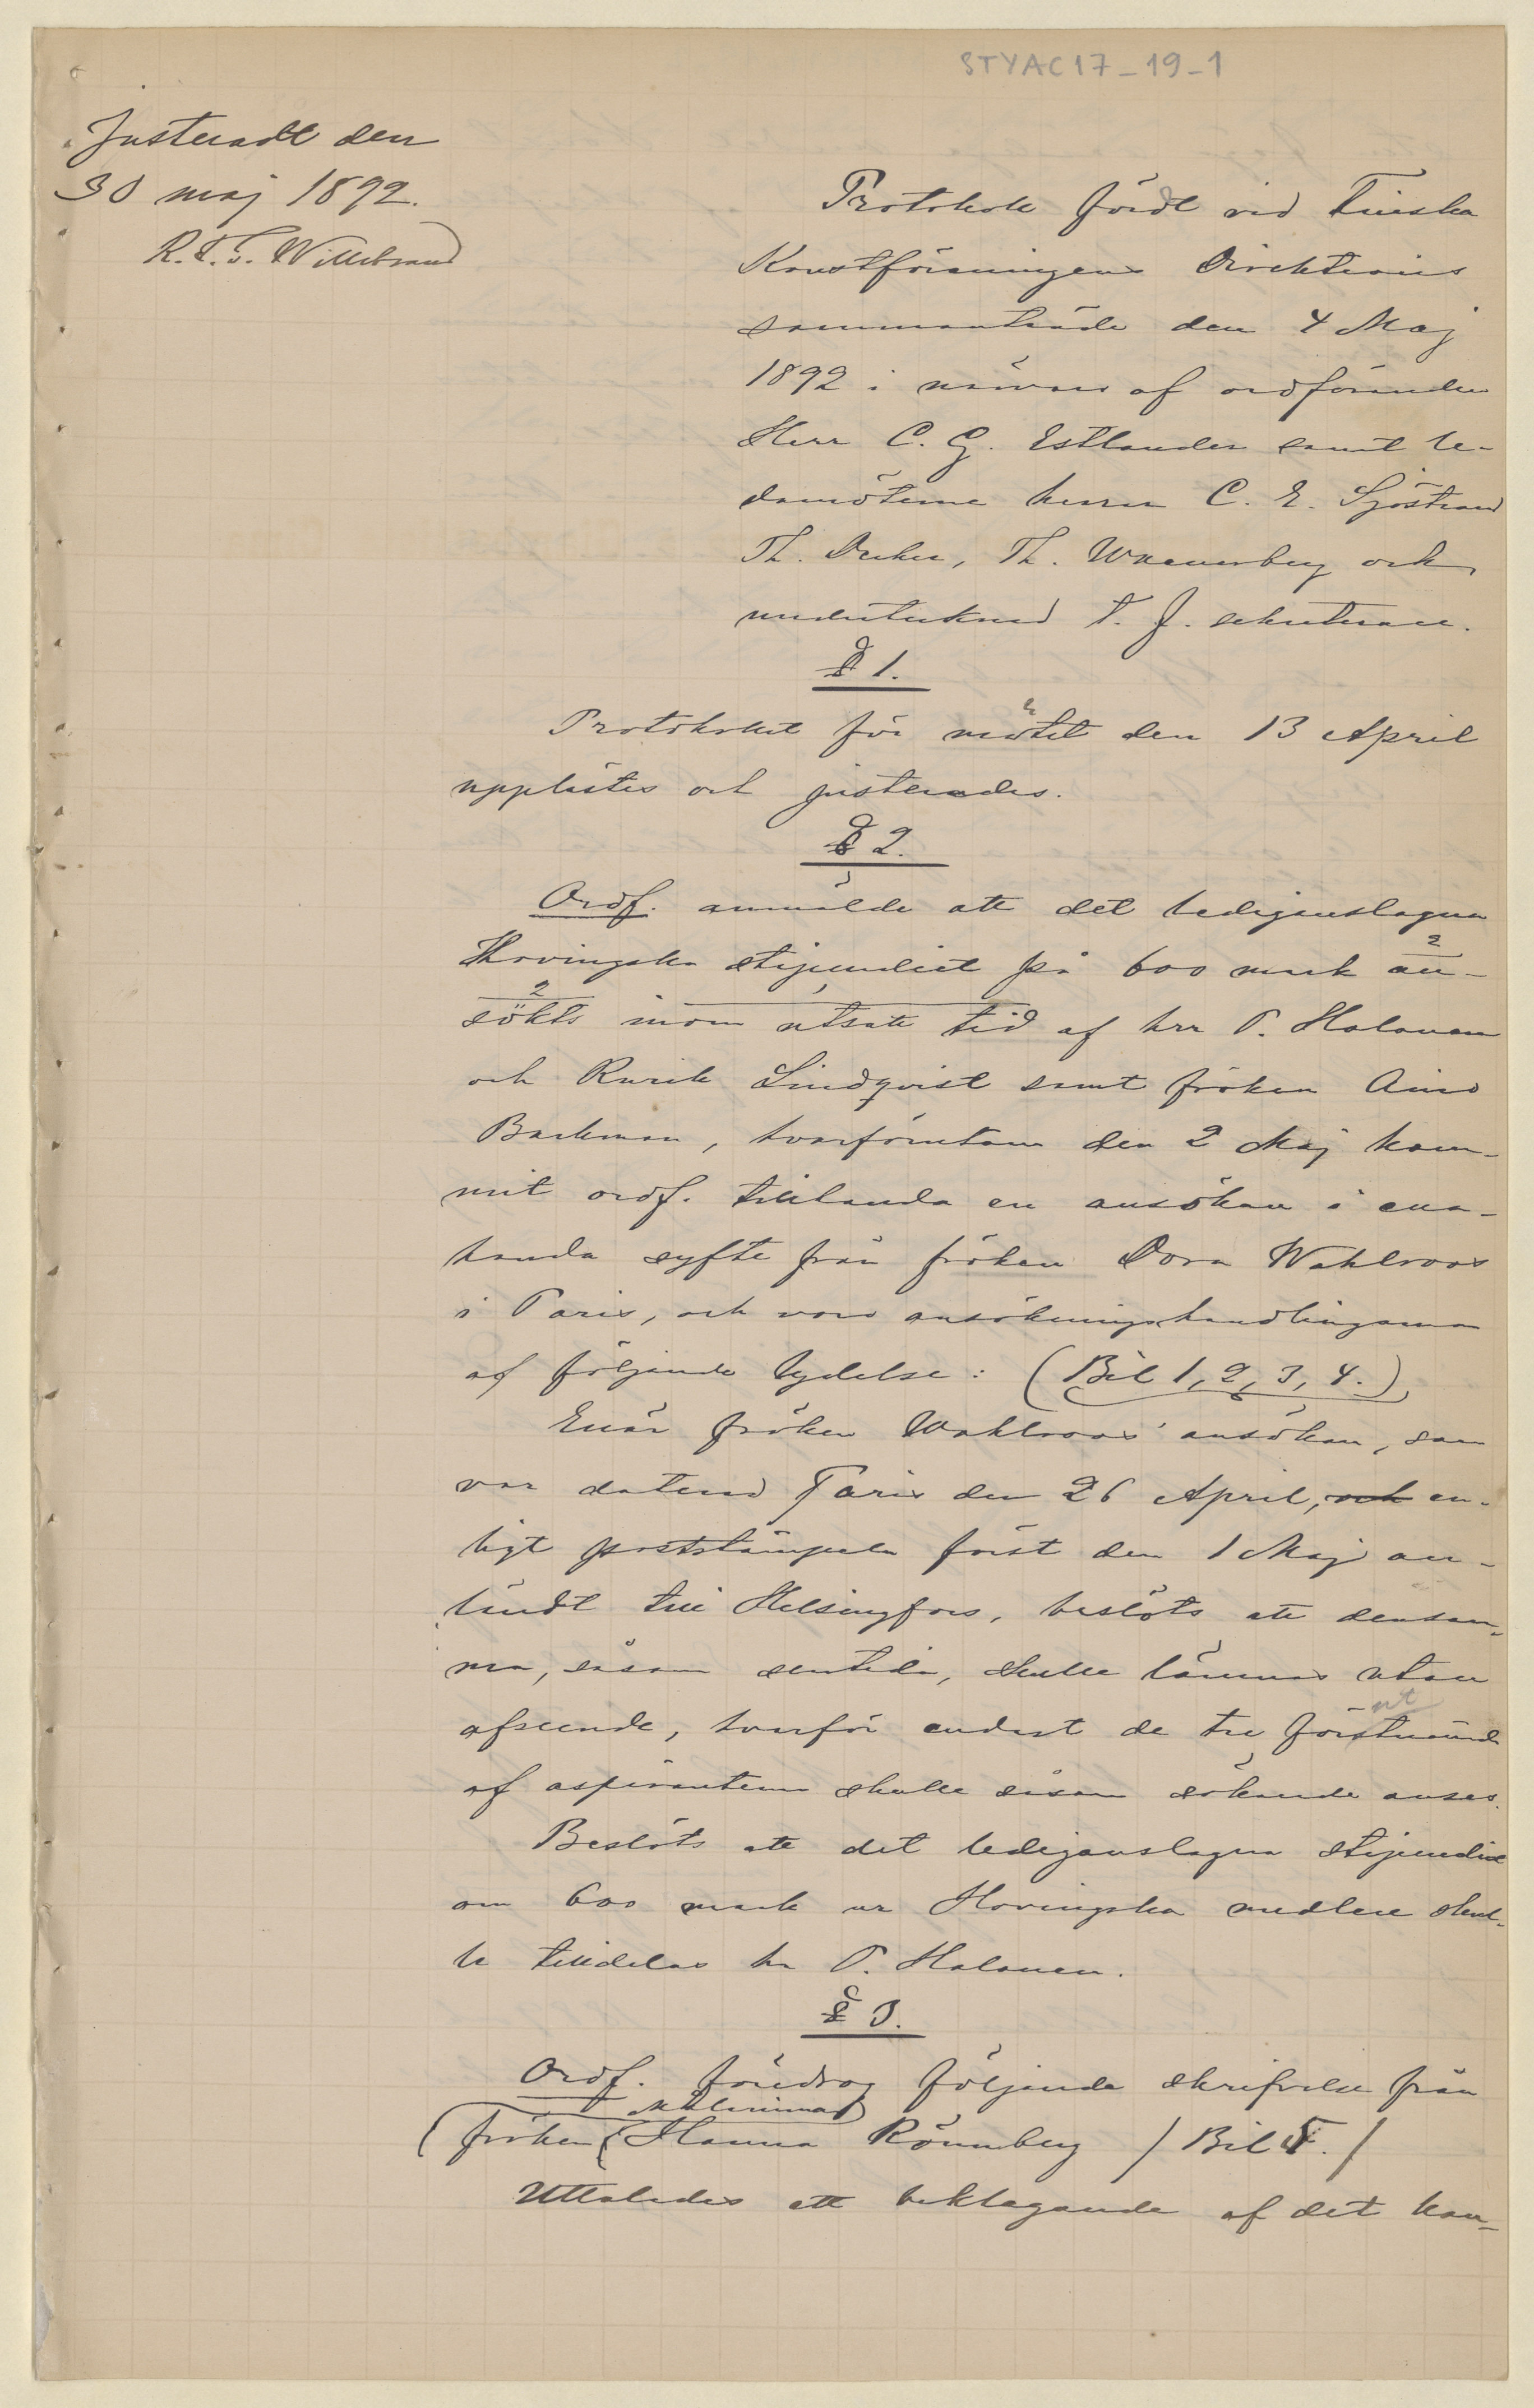 STYAC17_19_1
Justeradt den
30 maj 1892.
R. F. v. Willebrand
Protokoll fördt vid Finska
Konstföreningens Direktions
sammanträde den 4 Maj
1892 i närvaro af ordföranden
Herr C. G. Estlander samt le-
damöterne herrar C. E. Sjöstrand
Th. Decker, Th. Waenerberg och
undertecknad t. f. sekreterare.
§ 1.
Protokollet för mötet den 13 April
upplästes och justerades.
§ 2.
Ordf. anmälde att det lediganslagna
Hovingska stipendiet på 600 mark an-
sökts inom utsatt tid af hrr P. Halonen
och Rurik Lindqvist samt fröken Aino
Backman, hvarförutom den 2 Maj kom-
mit ordf. tillhanda en ansökan i ena-
handa syfte från fröken Dora Wahlroos
i Paris, och voro ansökningshandlingarna
af följande lydelse: (Bil 1, 2, 3, 4.)
Enär fröken Wahlroos' ansökan, som
var daterad Paris den 26 April, och en-
ligt poststämpeln först den 1 Maj an-
ländt till Helsingfors, beslöts att densam-
ma, såsom sentida, skulle lämnas utan
afseende, hvarför endast de tre förstnämnda
af aspiranterna skulle såsom sökande anses.
Beslöts att det lediganslagna stipendiet
om 600 mark ur Hovingska medlen skul-
le tilldelas hr P. Halonen.
§ 3.
Ordf. föredrog följande skrifvelse från
Målarinnan
(fröken (Hanna Rönnberg / Bil 5. /
Uttalades ett beklagande af det kan-